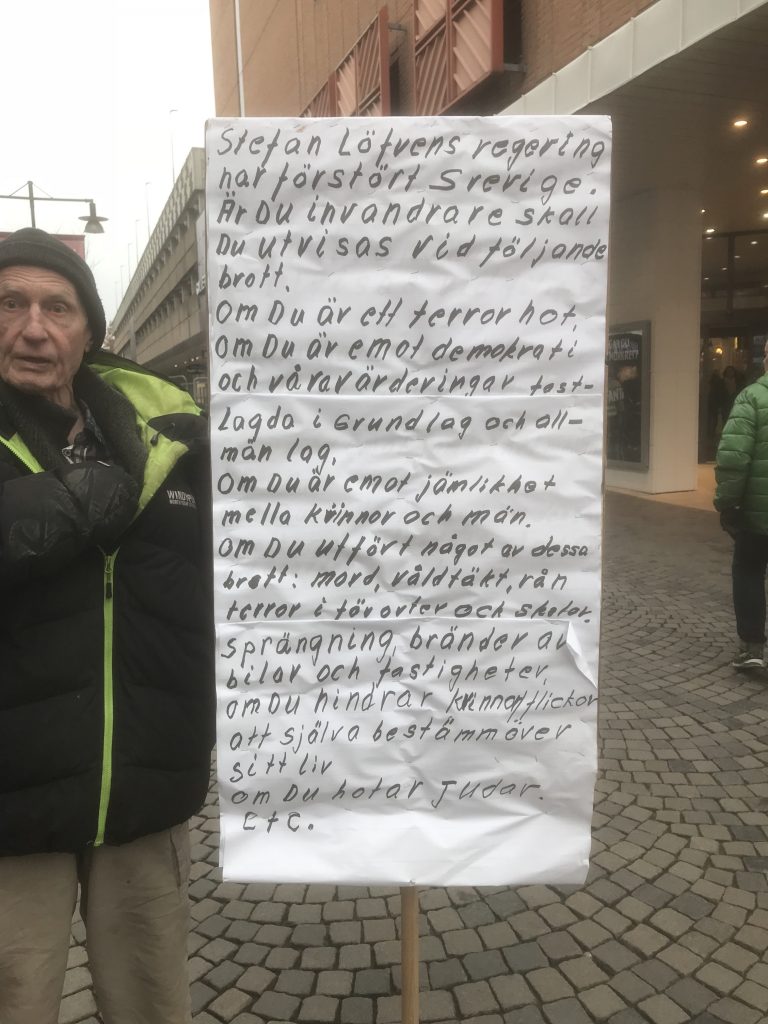 Stefan Löfvens regering
har förstört Sverige.
Är Du invandrare skall
Du utvisas vid följande
brott.
om Du är ett terror hot,
om Du är emot demokrati
och våra värderingar fast-
Lagda i Grundlag och all-
män lag,
om Du är emot jämlikhet
mella kvinnor och män.
om Du utfört något av dessa
brott: mord, våldtäkt, rån
terror i förorter och skolor.
sprängning, bränder av
bilar och fastigheter,
om Du hindrar kvinno/flickor
att själva bestämm över
sitt liv
om Du hotar Judar.
Etc.